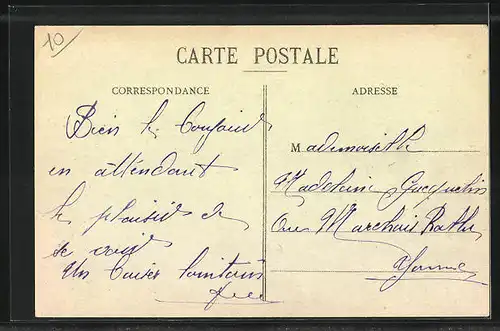 10
CARTE POSTALE
CORRESPONDANCE
Bien le
en attendant
le plaisir de
se voir
Un baiser lointain
ADRESSE
Mademoiselle
Madeleine
au Marchais
Yonne